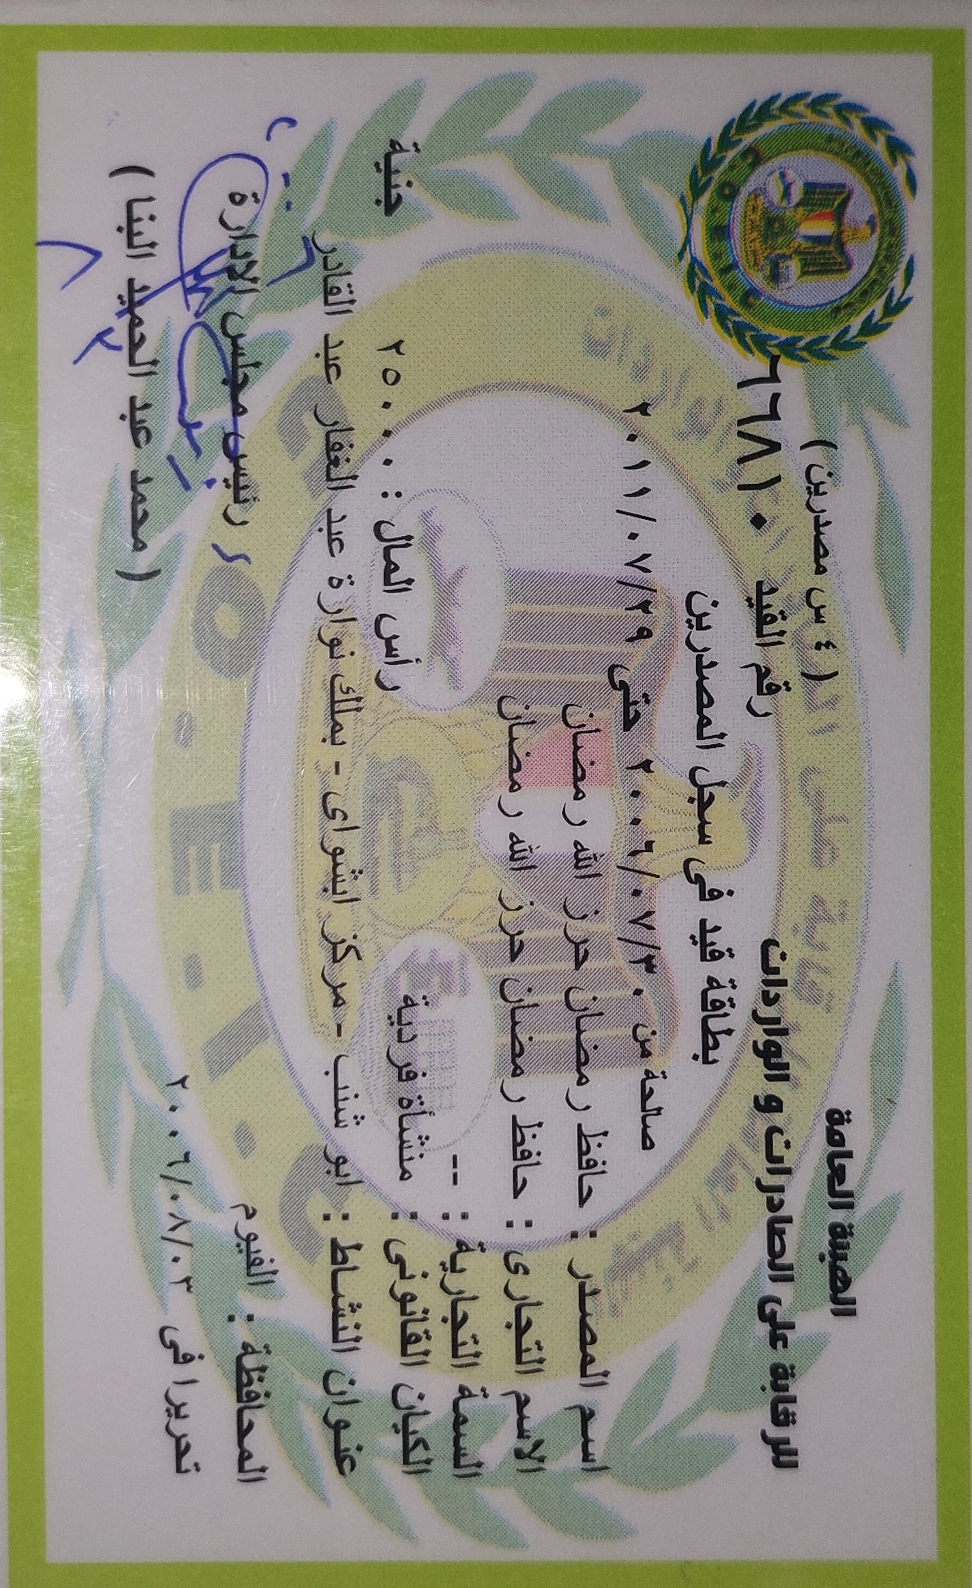 الهيئة العامة
للرقابة على الصادرات و الواردات
( ٤ س مصدرين )
رقم القيد ٦٦٨١٠
بطاقة قيد فى سجل المصدرين
صالحة من ٢٠٠٦/٠٧/٣٠ حتى ٢٠١١/٠٧/٢٩
اسم المصدر : حافظ رمضان حرز الله رمضان
الاسم التجارى : حافظ رمضان حرز الله رمضان
السمة التجارية : --
الكيان القانونى : منشأة فردية رأس المال : ٢٥٠٠٠ جنية
عنوان النشاط : ابو شنب - مركز ابشواى - بملك نوارة عبد الغفار عبد القادر
المحافظة : الفيوم
تحريرا فى ٢٠٠٦/٠٨/٠٣
رئيس مجلس الادارة
( محمد عبد الحميد البنا )
G.O.E.I.C